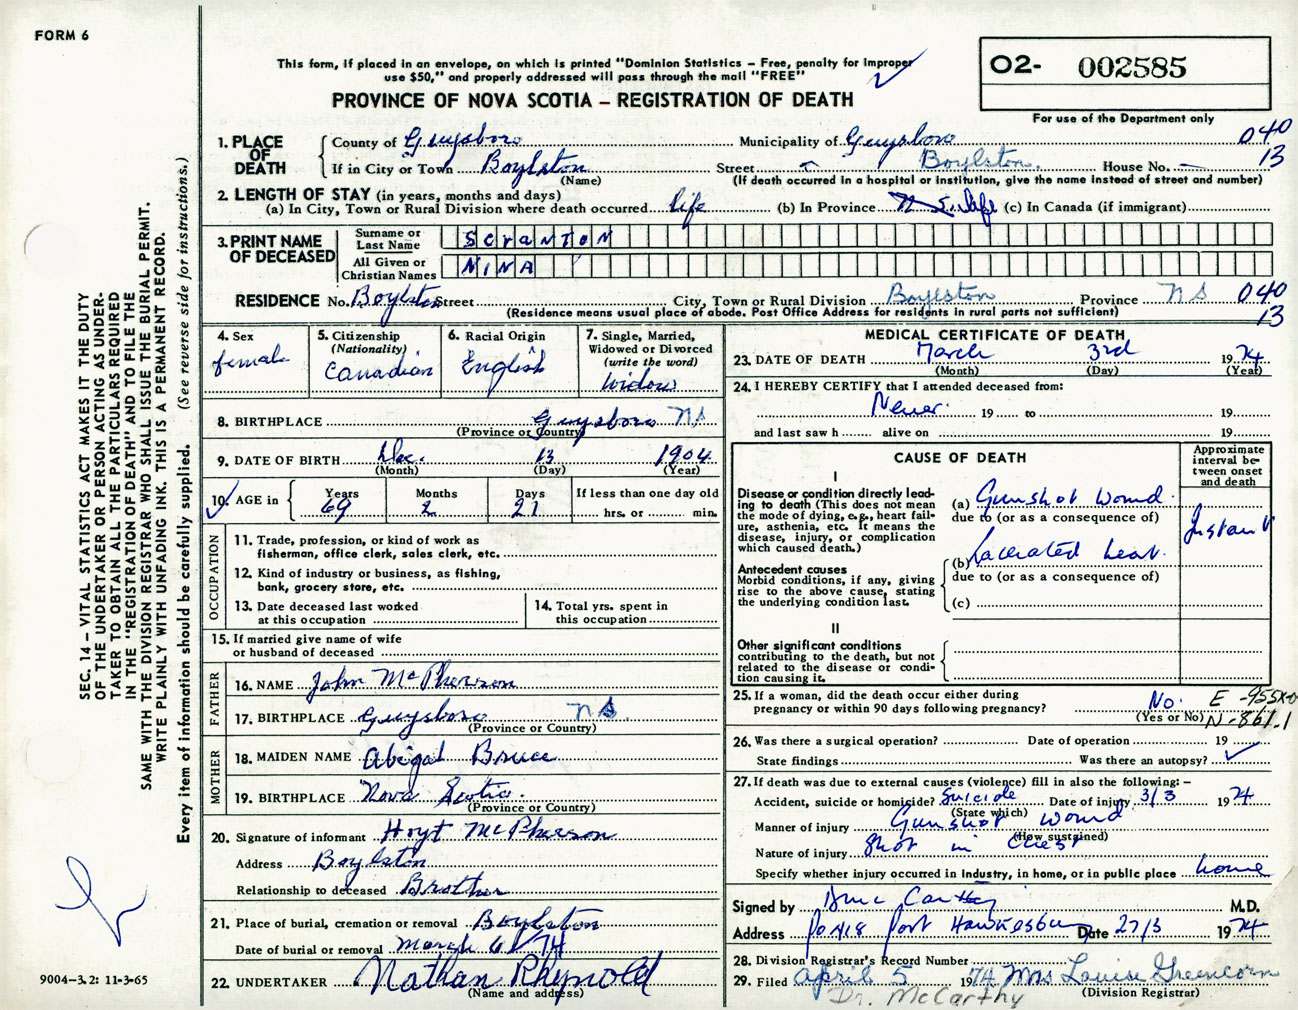 FORM 6
This form, if placed in an envelope, on which is printed "Dominion Statistics – Free, penalty for improper
use $50," and properly addressed will pass through the mail "FREE"
PROVINCE OF NOVA SCOTIA – REGISTRATION OF DEATH
O2- 002585
For use of the Department only
1. PLACE OF DEATH
County of Guysboro Municipality of Guysboro 040
If in City or Town Boylston Street Boylston House No. — 13
(Name) (If death occurred in a hospital or institution, give the name instead of street and number)
2. LENGTH OF STAY (in years, months and days)
(a) In City, Town or Rural Division where death occurred life (b) In Province life (c) In Canada (if immigrant)
3. PRINT NAME OF DECEASED
Surname or Last Name SCranTON
All Given or Christian Names NINA
RESIDENCE No. Boylston Street City, Town or Rural Division Boylston Province NS 040
(Residence means usual place of abode. Post Office Address for residents in rural parts not sufficient) 13
4. Sex female
5. Citizenship (Nationality) Canadian
6. Racial Origin English
7. Single, Married, Widowed or Divorced (write the word) Widow
8. BIRTHPLACE Guysboro NS
(Province or Country)
9. DATE OF BIRTH Dec. 13 1904
(Month) (Day) (Year)
10. AGE in Years Months Days If less than one day old
69 2 21 hrs. or min.
OCCUPATION
11. Trade, profession, or kind of work as
fisherman, office clerk, sales clerk, etc.
12. Kind of industry or business, as fishing,
bank, grocery store, etc.
13. Date deceased last worked
at this occupation
14. Total yrs. spent in
this occupation
15. If married give name of wife
or husband of deceased
FATHER
16. NAME John McPherson
17. BIRTHPLACE Guysboro N.S.
(Province or Country)
MOTHER
18. MAIDEN NAME Abigal Bruce
19. BIRTHPLACE Nova Scotia.
(Province or Country)
20. Signature of informant Hoyt McPherson
Address Boylston
Relationship to deceased Brother
21. Place of burial, cremation or removal Boylston
Date of burial or removal March 6/74
22. UNDERTAKER Nathan Rhynold
(Name and address)
MEDICAL CERTIFICATE OF DEATH
23. DATE OF DEATH March 3rd 1974
(Month) (Day) (Year)
24. I HEREBY CERTIFY that I attended deceased from:
Never 19 to 19
and last saw h alive on 19
CAUSE OF DEATH
Approximate interval be-tween onset and death
I
Disease or condition directly lead-
ing to death (This does not mean
the mode of dying, e.g., heart fail-
ure, asthenia, etc. It means the
disease, injury, or complication
which caused death.)
(a) Gunshot wound
due to (or as a consequence of)
Instant
(b) Lacerated heart.
due to (or as a consequence of)
(c)
Antecedent causes
Morbid conditions, if any, giving
rise to the above cause, stating
the underlying condition last.
II
Other significant conditions
contributing to the death, but not
related to the disease or condi-
tion causing it.
25. If a woman, did the death occur either during
pregnancy or within 90 days following pregnancy? No.
(Yes or No) N-861.1
26. Was there a surgical operation? Date of operation 19
State findings Was there an autopsy? ✓
27. If death was due to external causes (violence) fill in also the following:–
Accident, suicide or homicide? Suicide Date of injury 3/3 1974
(State which)
Manner of injury Gunshot wound
(How sustained)
Nature of injury Shot in Chest
Specify whether injury occurred in industry, in home, or in public place home
Signed by M.D.
Address Port Hawkesbury Date 27/3 1974
28. Division Registrar's Record Number
29. Filed April 5 1974 Mrs Louise Greencorn
(Division Registrar)
Dr. McCarthy
SEC. 14 – VITAL STATISTICS ACT MAKES IT THE DUTY
OF THE UNDERTAKER OR PERSON ACTING AS UNDER-
TAKER TO OBTAIN ALL THE PARTICULARS REQUIRED
IN THE "REGISTRATION OF DEATH" AND TO FILE THE
SAME WITH THE DIVISION REGISTRAR WHO SHALL ISSUE THE BURIAL PERMIT.
WRITE PLAINLY WITH UNFADING INK. THIS IS A PERMANENT RECORD.
Every item of information should be carefully supplied. (See reverse side for instructions.)
9004-3.2: 11-3-65